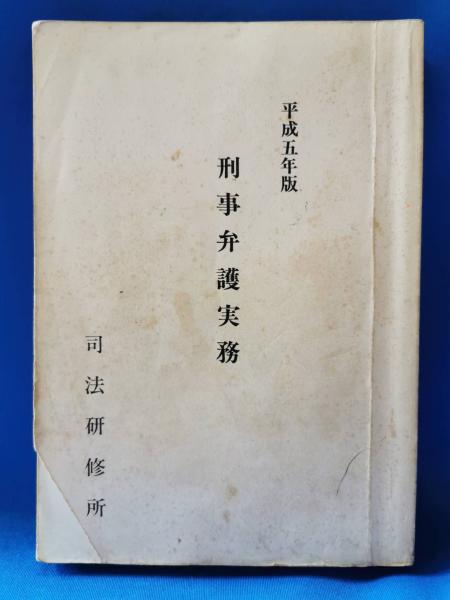 平成五年版
刑事弁護実務
司法研修所